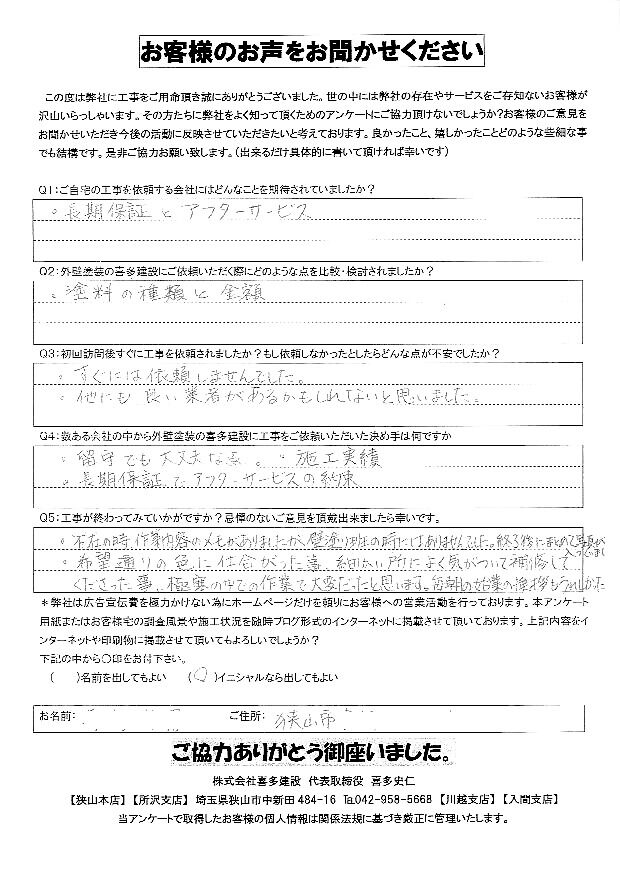 お客様のお声をお聞かせください
この度は弊社に工事をご用命頂き誠にありがとうございました。世の中には弊社の存在やサービスをご存知ないお客様が
沢山いらっしゃいます。その方たちに弊社をよく知って頂くためのアンケートにご協力頂けないでしょうか?お客様のご意見を
お聞かせいただき今後の活動に反映させていただきたいと考えております。良かったこと、嬉しかったことどのような些細な事
でも結構です。是非ご協力お願い致します。(出来るだけ具体的に書いて頂ければ幸いです)
Q1:ご自宅の工事を依頼する会社にはどんなことを期待されていましたか?
。長期保証とアフターサービス
Q2:外壁塗装の喜多建設にご依頼いただく際にどのような点を比較・検討されましたか?
。塗料の種類と金額
Q3:初回訪問後すぐに工事を依頼されましたか?もし依頼しなかったとしたらどんな点が不安でしたか?
。すぐには依頼しませんでした。
。他にも良い業者があるかもしれないと思いました。
Q4:数ある会社の中から外壁塗装の喜多建設に工事をご依頼いただいた決め手は何ですか
。留守でも大丈夫な点。 。施工実績
。長期保証とアフターサービスの約束
Q5:工事が終わってみていかがですか?忌憚のないご意見を頂戴出来ましたら幸いです。
。不在の時、作業内容のメモがありましたが、壁塗り の時にはありませんでした。終了後にまとめて写真が入ってました
。希望通りの色に仕合がった事、細かい所によく気がついて補修して
くださった事、極寒の中での作業で大変だったと思います。毎朝の始業の挨拶もうれしかった
*弊社は広告宣伝費を極力かけない為にホームページだけを頼りにお客様への営業活動を行っております。本アンケート
用紙またはお客様宅の調査風景や施工状況を随時ブログ形式のインターネットに掲載させて頂いております。上記内容をイ
ンターネットや印刷物に掲載させて頂いてもよろしいでしょうか?
下記の中から〇印をお付下さい。
( )名前を出してもよい (〇)イニシャルなら出してもよい
お名前: ご住所: 狭山市
ご協力ありがとう御座いました。
株式会社喜多建設 代表取締役 喜多史仁
【狭山本店】【所沢支店】 埼玉県狭山市中新田484-16 ℡042-958-5668 【川越支店】【入間支店】
当アンケートで取得したお客様の個人情報は関係法規に基づき厳正に管理いたします。